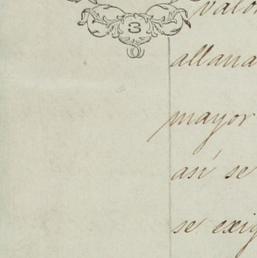 3
valo
allana
mayor
así se
se exig